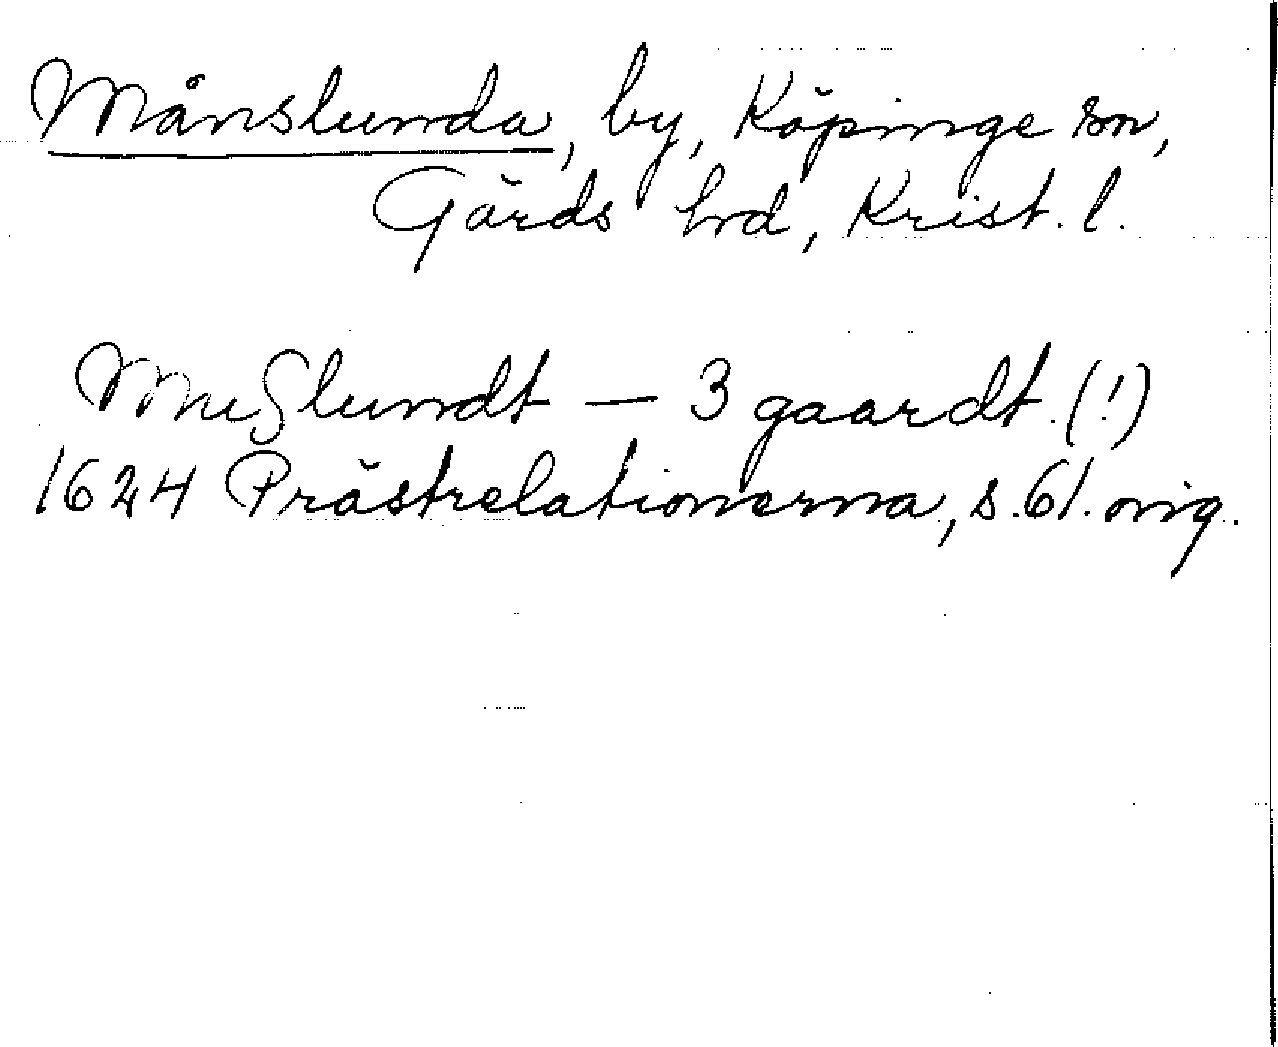 Månslunda, by, Köpinge sn,
Gärds hrd, Krist. l.
MuSlundt — 3 gaardt. (!)
1624 Prästrelationerna, s. 61. orig.